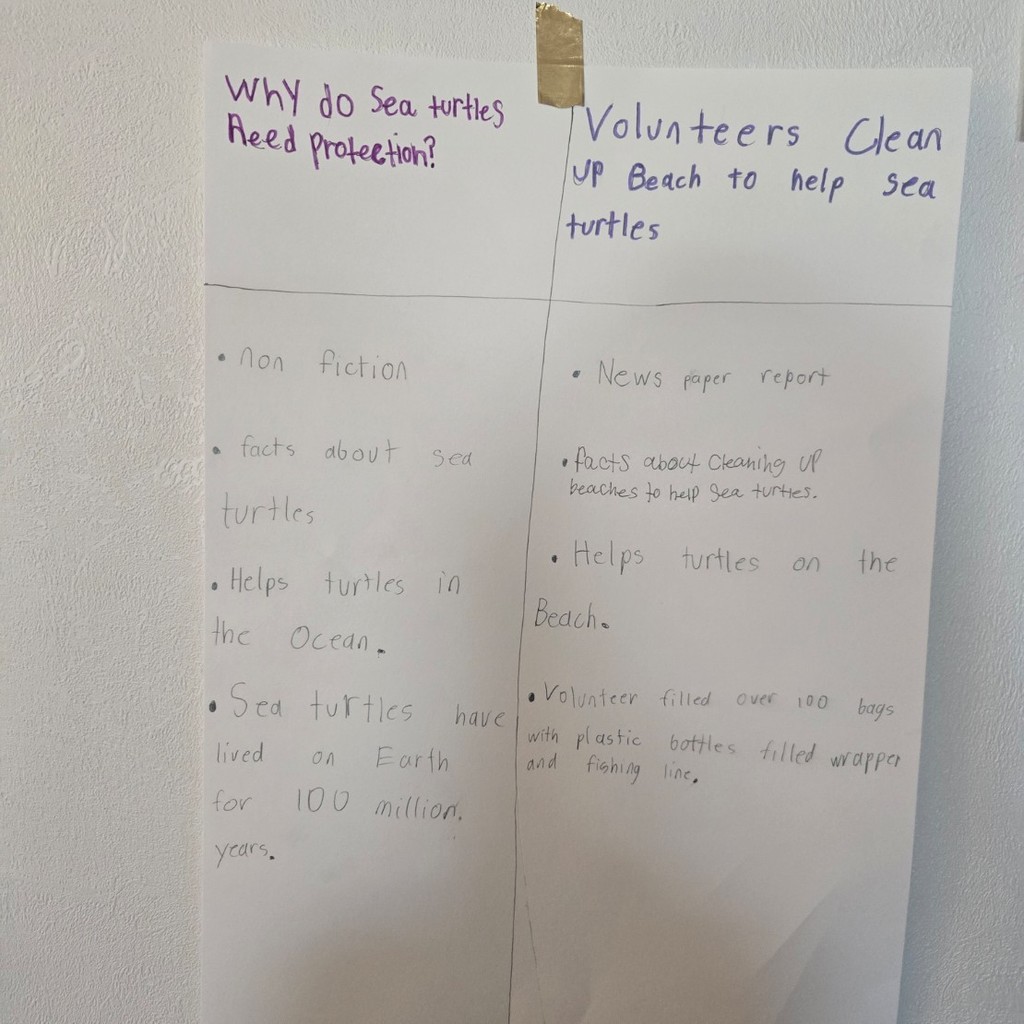 Why do Sea turtles
Need protection?
Volunteers Clean
UP Beach to help sea
turtles
• non fiction
• facts about sea
turtles
• Helps turtles in
the Ocean.
• Sea turtles have
lived on Earth
for 100 million.
years.
• News paper report
• facts about Cleaning UP
beaches to help Sea turtles.
• Helps turtles on the
Beach.
• Volunteer filled over 100 bags
with plastic bottles filled wrapper
and fishing line.